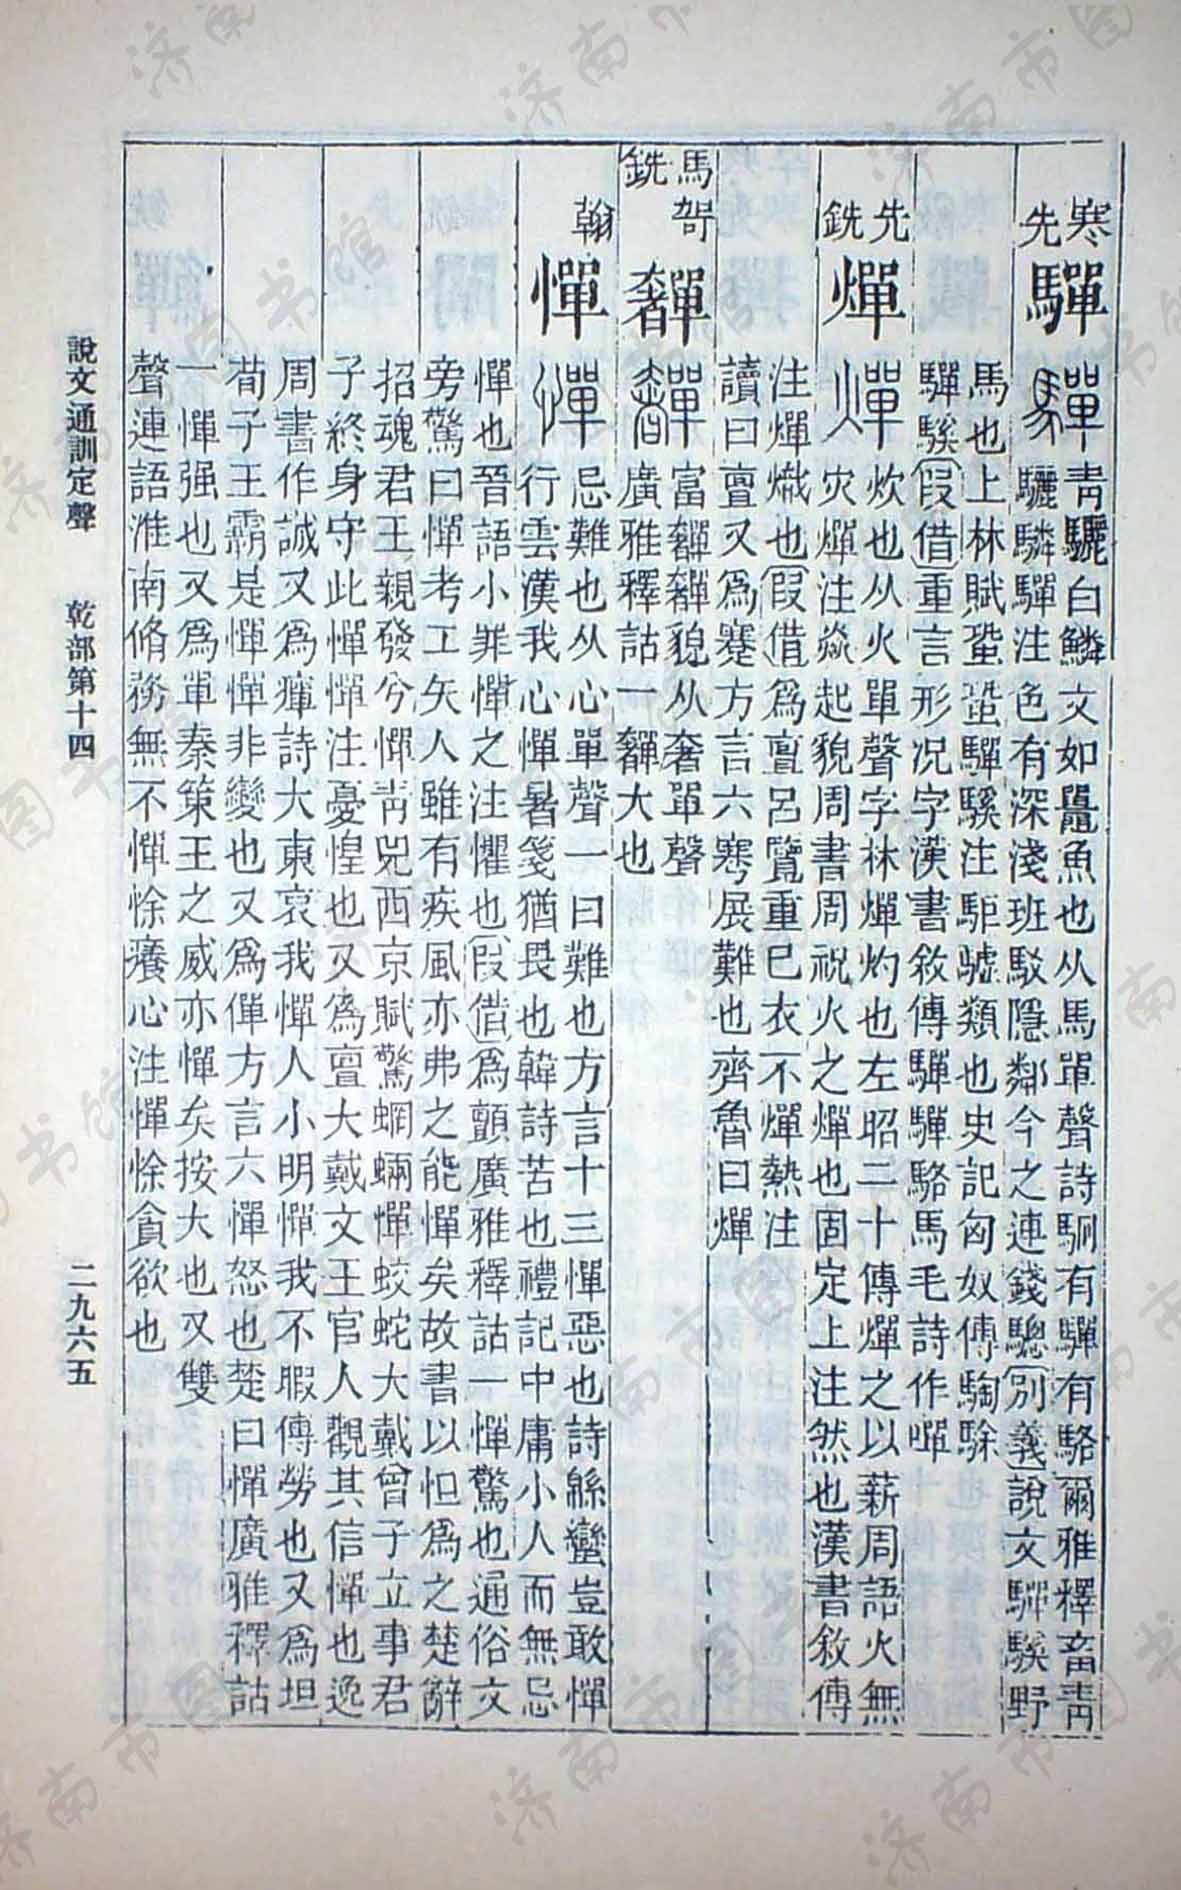 寒
先
驒
青驪白鱗文如鼉魚也从馬單聲詩駉有驒有駱爾雅釋畜青
驪驎驒注色有深淺班駁隱鄰今之連錢驄別義說文驒騱野
馬也上林賦蛩蛩驒騱注駏驉類也史記匈奴傳騊駼
驒騱叚借重言形況字漢書敘傳驒驒駱馬毛詩作嘽
先
銑
燀
炊也从火單聲字林燀灼也左昭二十傳燀之以薪周語火無
灾燀注焱起貌周書周祝火之燀也固定上注然也漢書敘傳
注燀熾也叚借為亶呂覽重己衣不燀熱注
讀曰亶又為蹇方言六䠭展難也齊魯曰燀
馬哿
銑
奲
富奲奲貌从奢單聲
廣雅釋詁一奲大也
翰
憚
忌難也从心單聲一曰難也方言十三憚惡也詩緜蠻豈敢憚
行雲漢我心憚暑箋猶畏也韓詩苦也禮記中庸小人而無忌
憚也晉語小罪憚之注懼也叚借為顫廣雅釋詁一憚驚也通俗文
旁驚曰憚考工矢人雖有疾風亦弗之能憚矣故書以怛為之楚辭
招魂君王親發兮憚青兕西京賦驚蝄蜽憚蛟蛇大戴曾子立事君
子終身守此憚憚注憂惶也又為亶大戴文王官人觀其信憚也逸
周書作誠又為癉詩大東哀我憚人小明憚我不暇傳勞也又為坦
荀子王霸是憚憚非變也又為僤方言六憚怒也楚曰憚廣雅釋詁
一憚强也又為單秦策王之威亦憚矣按大也又雙
聲連語淮南脩務無不憚悇癢心注憚悇貪欲也
說文通訓定聲 乾部第十四 二九六五
济南市图书馆